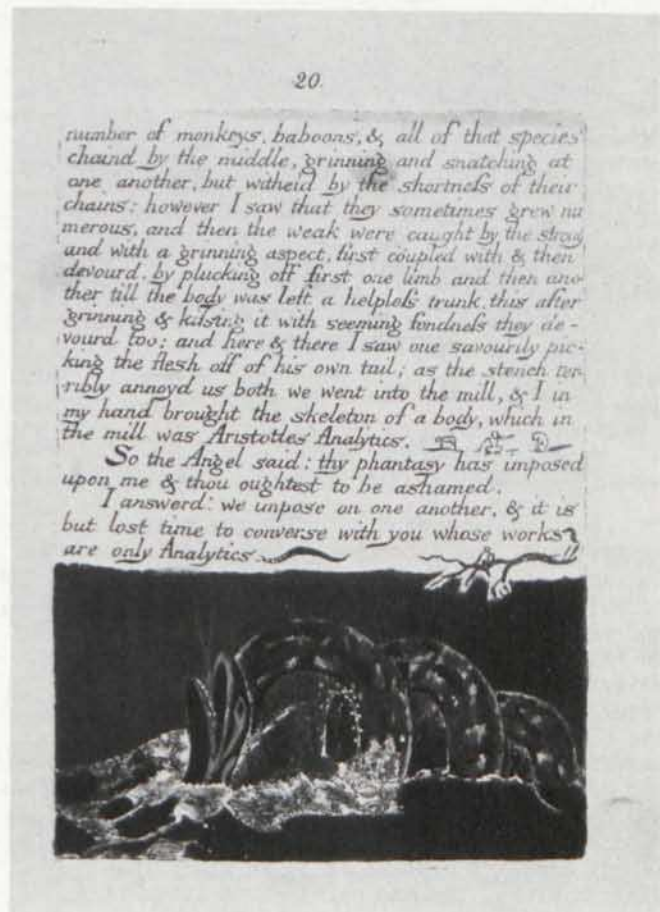 20.
number of monkeys, baboons, & all of that species
chaind by the middle, grinning and snatching at
one another, but witheld by the shortness of their
chains: however I saw that they sometimes grew nu
merous, and then the weak were caught by the strong
and with a grinning aspect, first coupled with & then
devourd, by plucking off first one limb and then ano
ther till the body was left a helpless trunk. this after
grinning & kissing it with seeming fondness they de-
vourd too; and here & there I saw one savourily pic-
king the flesh off of his own tail; as the stench ter-
ribly annoyd us both we went into the mill, & I in
my hand brought the skeleton of a body, which in
the mill was Aristotles Analytics.
So the Angel said: thy phantasy has imposed
upon me & thou oughtest to be ashamed.
I answerd: we impose on one another, & it is
but lost time to converse with you whose works
are only Analytics